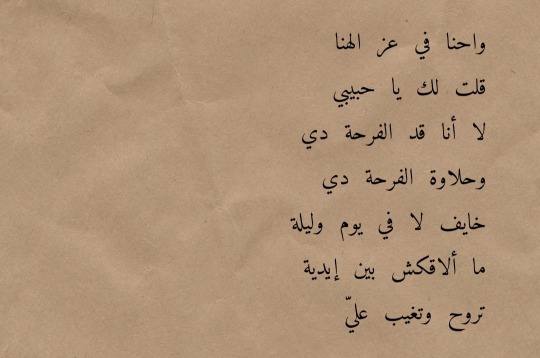 واحنا في عز الهنا
قلت لك يا حبيبي
لا أنا قد الفرحة دي
وحلاوة الفرحة دي
خايف لا في يوم وليلة
ما ألاقكش بين إيدية
تروح وتغيب عليّ